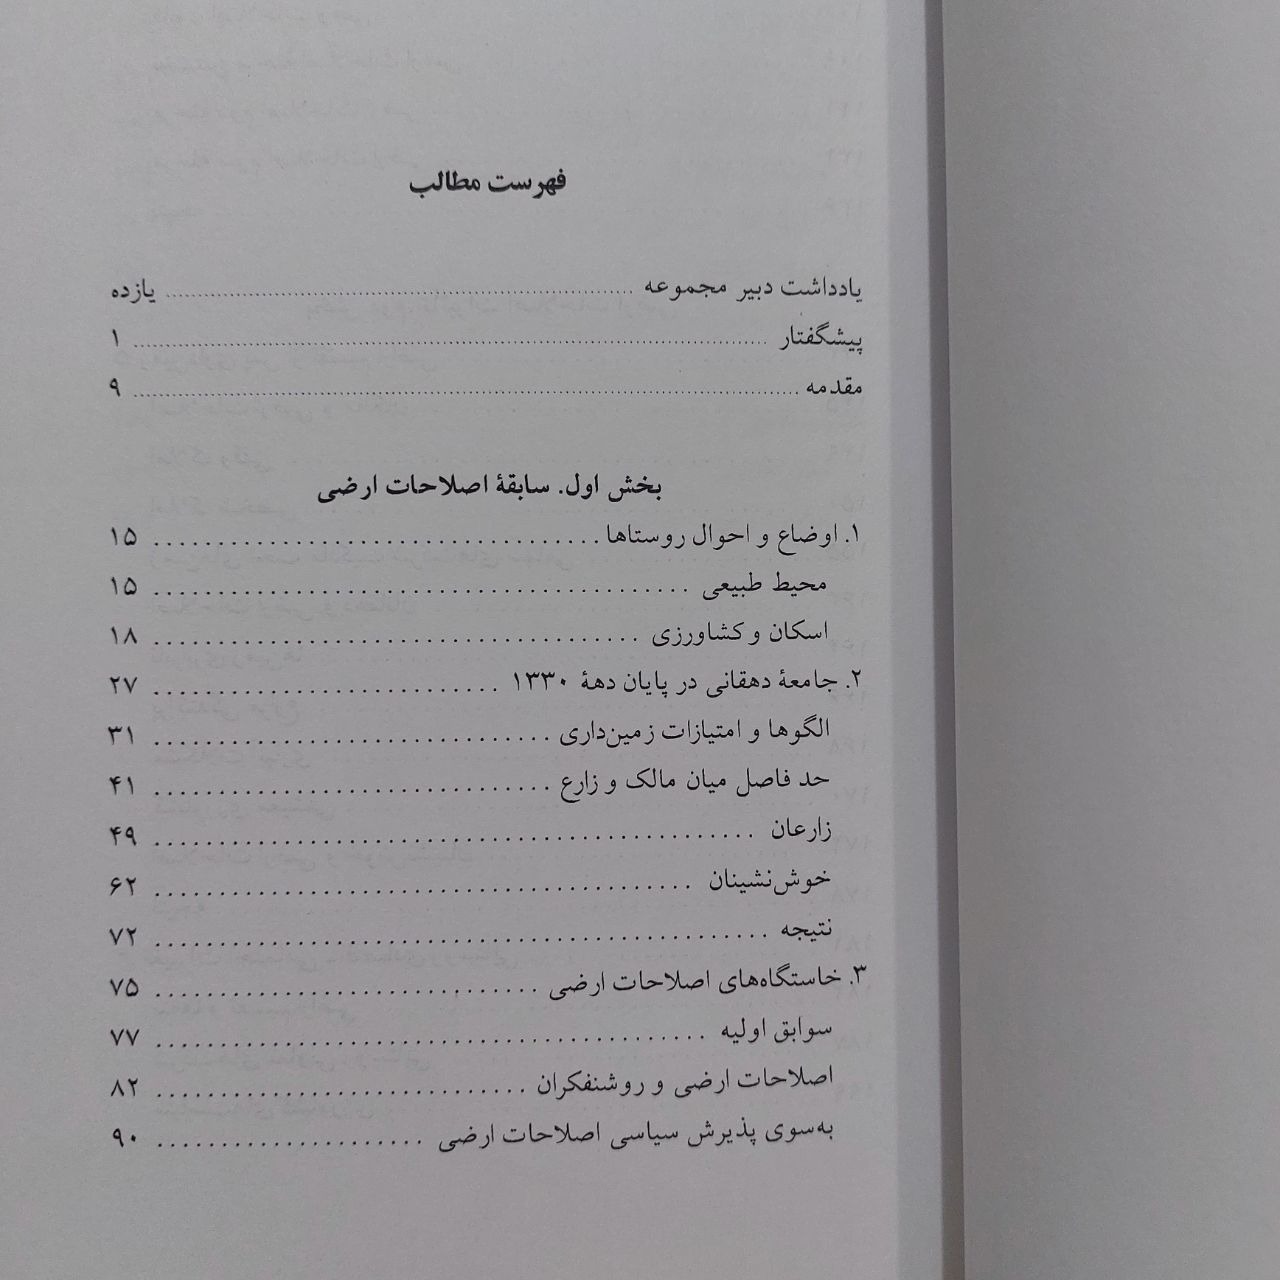 فهرست مطالب
یادداشت دبیر مجموعه ........ یازده
پیشگفتار ........ ۱
مقدمه ........ ۹
بخش اول. سابقهٔ اصلاحات ارضی
۱. اوضاع و احوال روستاها ........ ۱۵
محیط طبیعی ........ ۱۵
اسکان و کشاورزی ........ ۱۸
۲. جامعهٔ دهقانی در پایان دههٔ ۱۳۳۰ ........ ۲۷
الگوها و امتیازات زمین‌داری ........ ۳۱
حد فاصل میان مالک و زارع ........ ۴۱
زارعان ........ ۴۹
خوش‌نشینان ........ ۶۲
نتیجه ........ ۷۲
۳. خاستگاه‌های اصلاحات ارضی ........ ۷۵
سوابق اولیه ........ ۷۷
اصلاحات ارضی و روشنفکران ........ ۸۲
به‌سوی پذیرش سیاسی اصلاحات ارضی ........ ۹۰